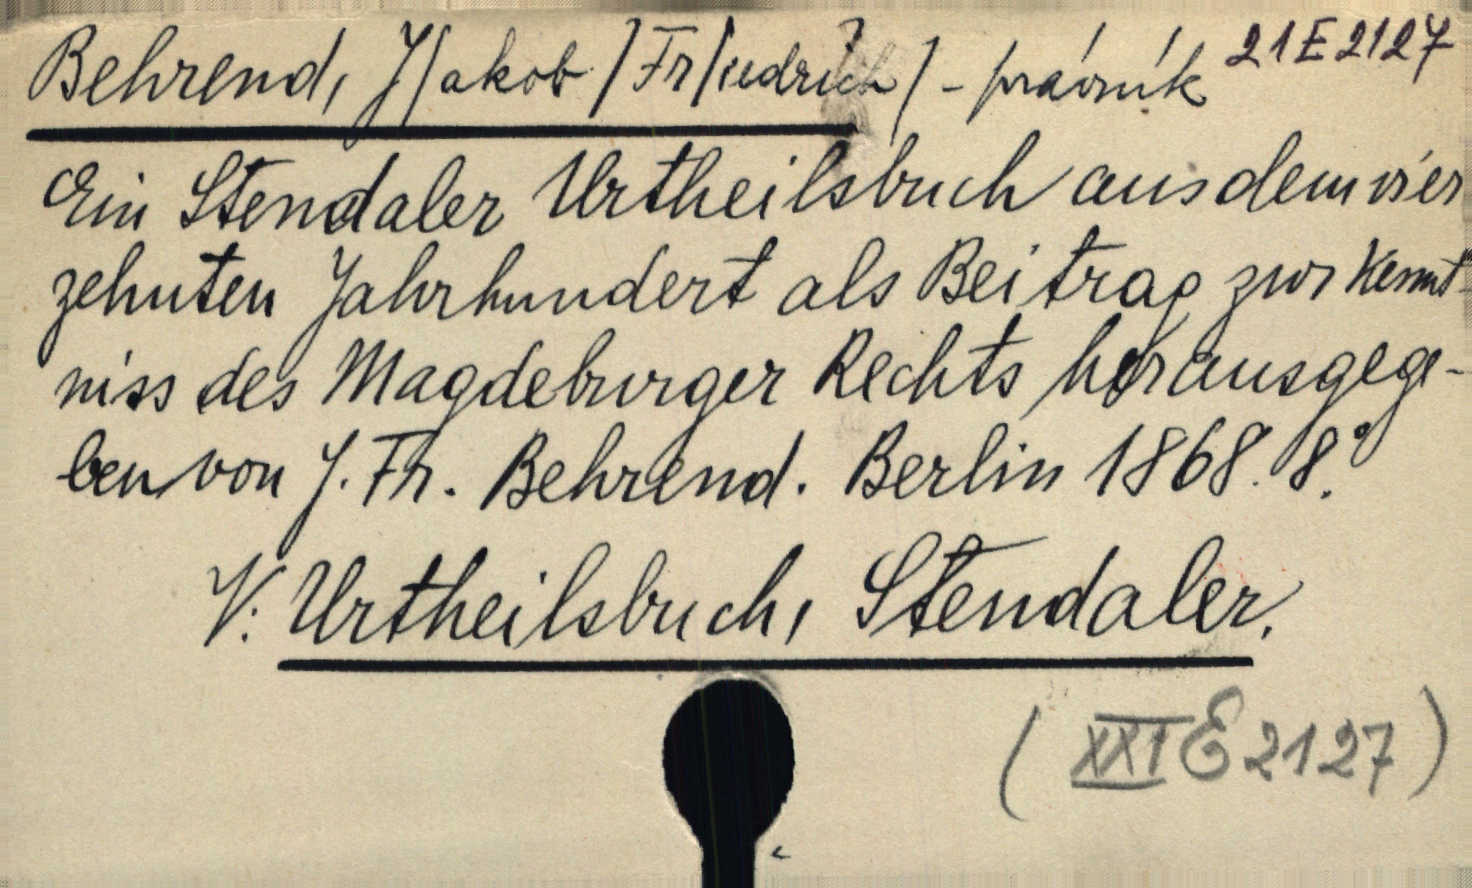 Behrend, J/akob/ Fr/iedrich/ - právník 21 E 2127
Ein Stendaler Urtheilsbuch aus dem vier
zehnten Jahrhundert als Beitrag zur Kennt-
niss des Magdeburger Rechts herausgege-
ben von J. Fr. Behrend. Berlin 1868. 8°.
V. Urtheilsbuch, Stendaler.
( XXI E 2127 )